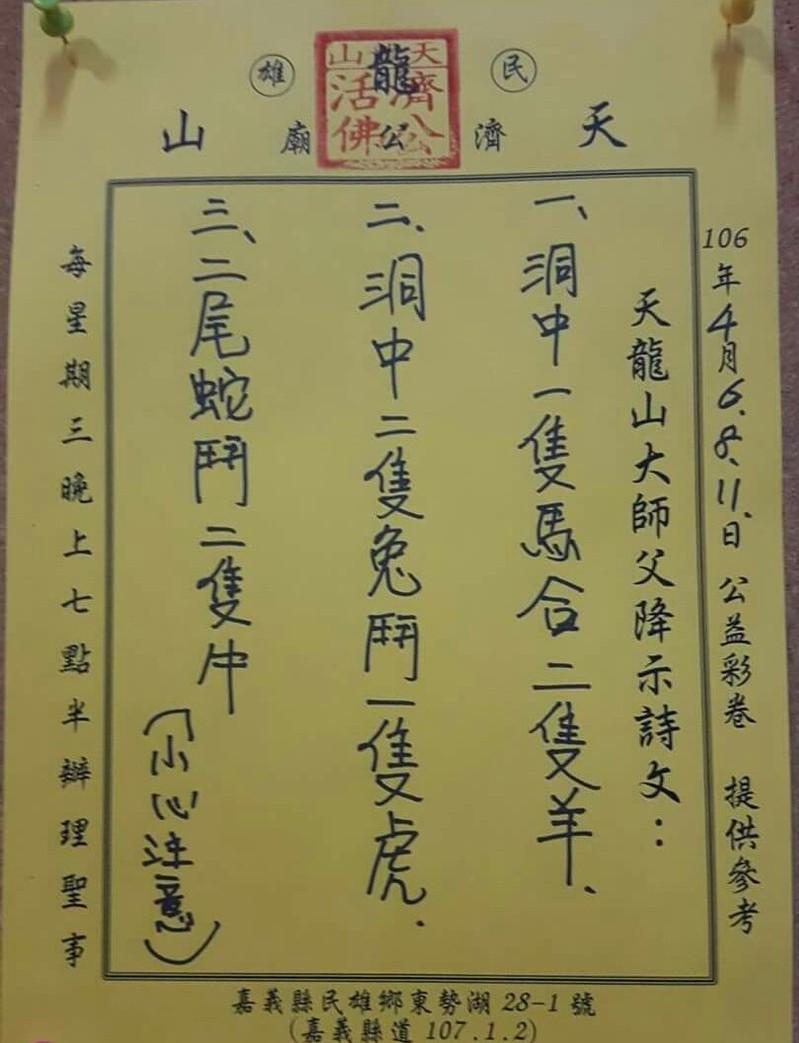 民雄
天龍山
濟公廟
天龍山
濟公
活佛
106年4月6.8.11.日 公益彩卷 提供參考
天龍山大師父降示詩文：
一、洞中一隻馬合二隻羊、
二、洞中二隻兔鬥一隻虎.
三、二尾蛇鬥二隻牛(小心注意)
每星期三晚上七點半辦理聖事
嘉義縣民雄鄉東勢湖 28-1 號
(嘉義縣道 107.1.2)